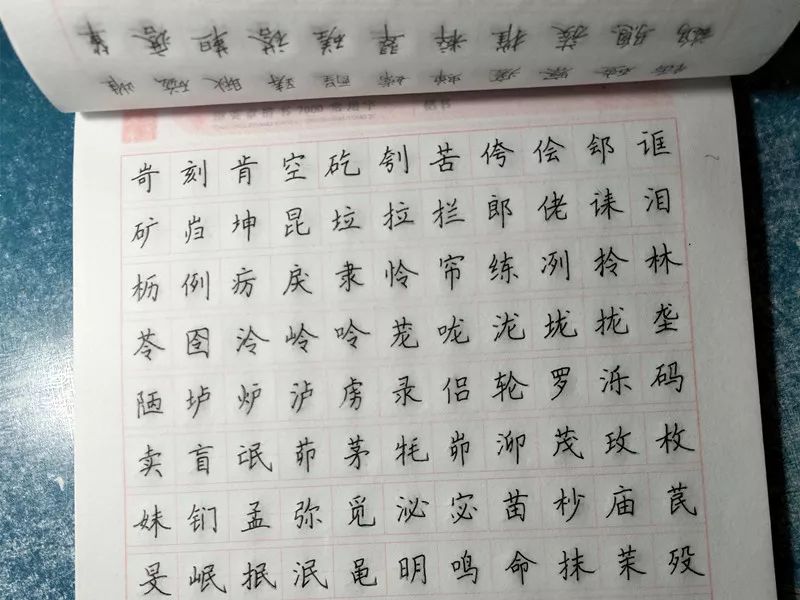 岢刻肯空矻刳苦侉侩郐诓
矿岿坤昆垃拉拦郎佬诔泪
枥例疠戾隶怜帘练冽拎林
苓囹泠岭呤茏咙泷垅拢垄
陋垆炉泸虏录侣轮罗泺码
卖盲氓茆茅牦峁泖茂玫枚
妹钔孟弥觅泌宓苗杪庙苠
旻岷抿泯黾明鸣命抹茉殁